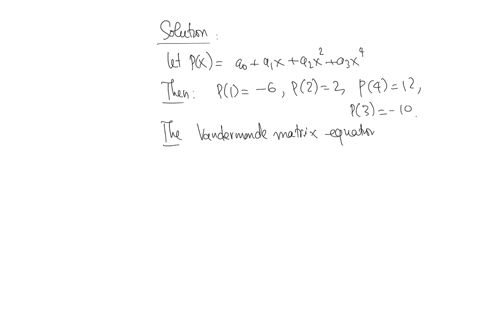 Solution:
let P(x) = a₀ + a₁x + a₂x² + a₃x⁴
Then: P(1) = -6, P(2) = 2, P(4) = 12,
P(3) = -10.
The Vandermonde matrix equation